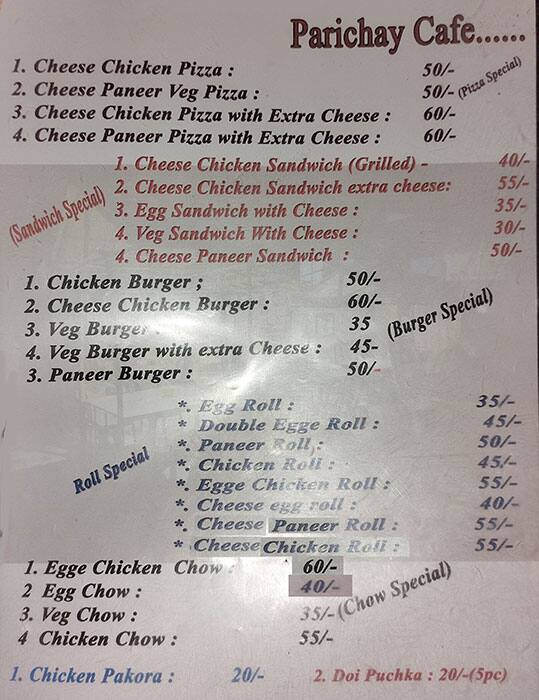 Parichay Cafe......
1. Cheese Chicken Pizza : 50/-
2. Cheese Paneer Veg Pizza : 50/- (Pizza Special)
3. Cheese Chicken Pizza with Extra Cheese : 60/-
4. Cheese Paneer Pizza with Extra Cheese : 60/-
(Sandwich Special)
1. Cheese Chicken Sandwich (Grilled) - 40/-
2. Cheese Chicken Sandwich extra cheese: 55/-
3. Egg Sandwich with Cheese : 35/-
4. Veg Sandwich With Cheese : 30/-
4. Cheese Paneer Sandwich : 50/-
1. Chicken Burger ; 50/-
2. Cheese Chicken Burger : 60/-
3. Veg Burger 35 (Burger Special)
4. Veg Burger with extra Cheese : 45-
3. Paneer Burger : 50/-
Roll Special
*. Egg Roll : 35/-
* Double Egge Roll : 45/-
*. Paneer Roll : 50/-
*. Chicken Roll : 45/-
*. Egge Chicken Roll : 55/-
*. Cheese egg roll : 40/-
*. Cheese Paneer Roll : 55/-
* Cheese Chicken Roll : 55/-
1. Egge Chicken Chow : 60/-
2 Egg Chow : 40/-
3. Veg Chow : 35/- (Chow Special)
4 Chicken Chow : 55/-
1. Chicken Pakora : 20/- 2. Doi Puchka : 20/-(5pc)